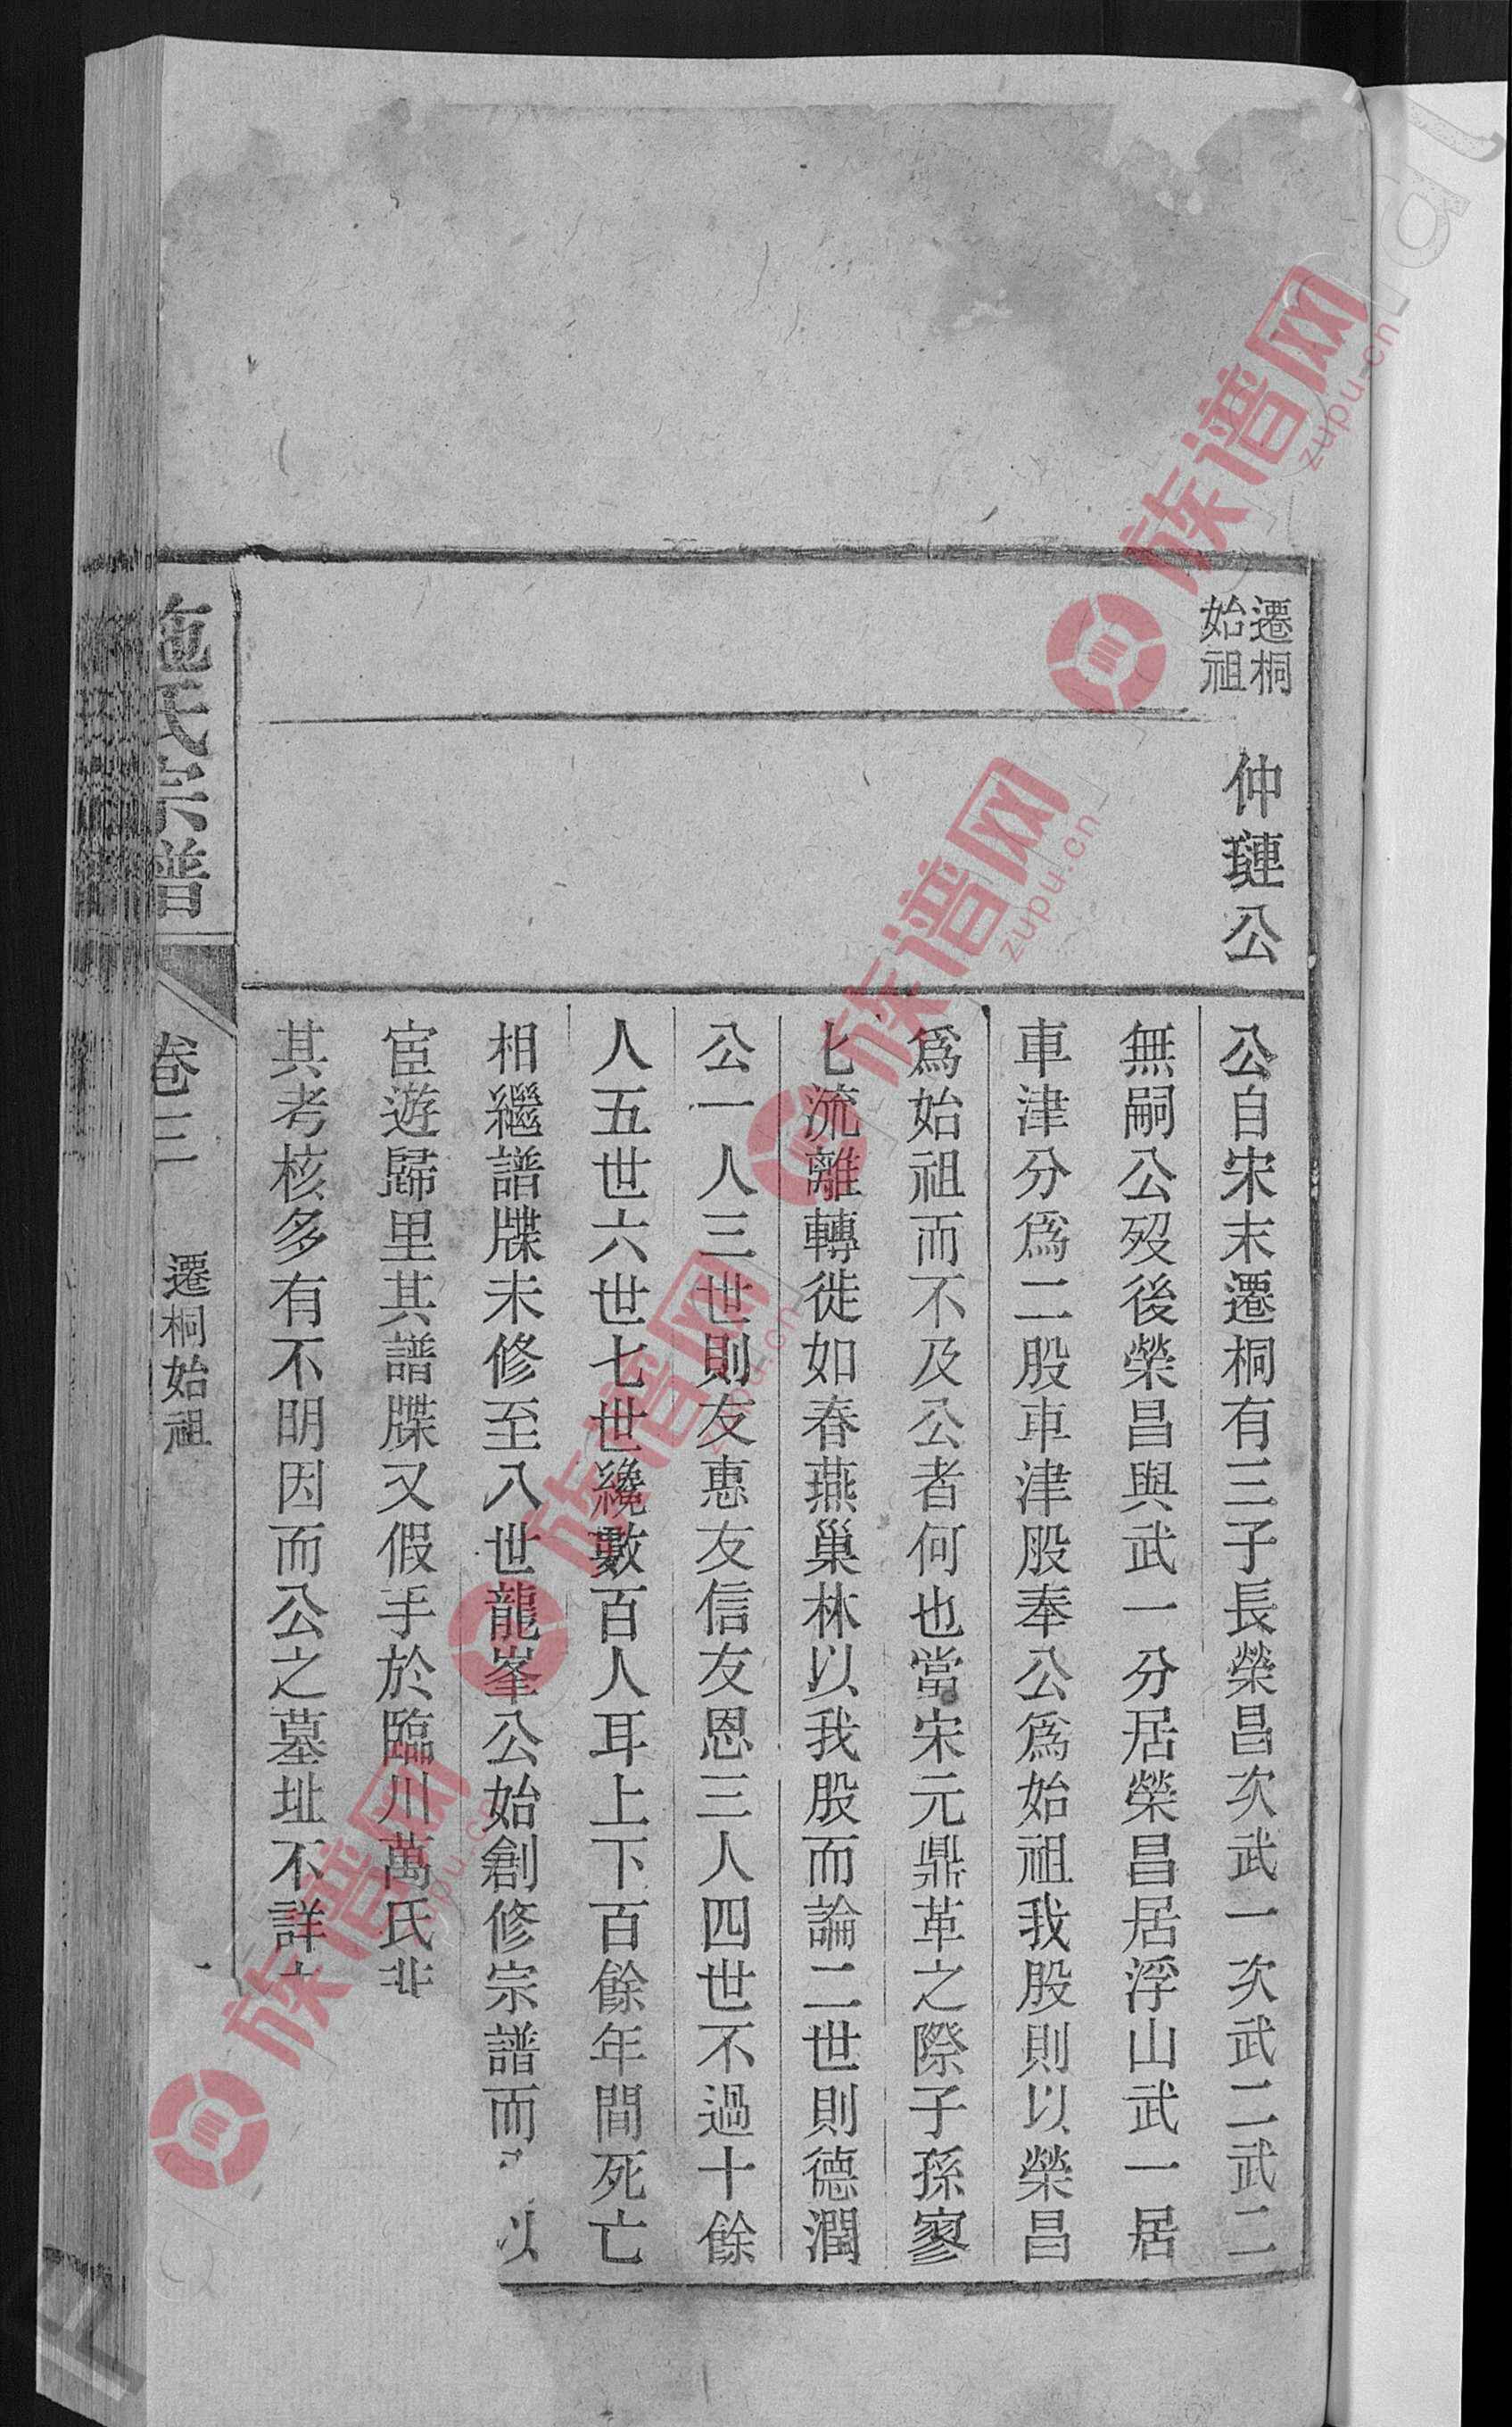 遷桐
始祖
仲璉公
公自宋末遷桐有三子長榮昌次武一次武二武二
無嗣公歿後榮昌與武一分居榮昌居浮山武一居
車津分爲二股車津股奉公爲始祖我股則以榮昌
爲始祖而不及公者何也當宋元鼎革之際子孫寥
七流離轉徙如春燕巢林以我股而論二世則德潤
公一人三世則友惠友信友恩三人四世不過十餘
人五世六世七世纔數百人耳上下百餘年間死亡
相繼譜牒未修至八世龍峯公始創修宗譜而以
宦遊歸里其譜牒又假手於臨川萬氏
其考核多有不明因而公之墓址不詳
施氏宗譜
卷三
遷桐始祖
一
族谱网
zupu.cn
族谱网
zupu.cn
族谱网
zupu.cn
族谱网
zupu.cn